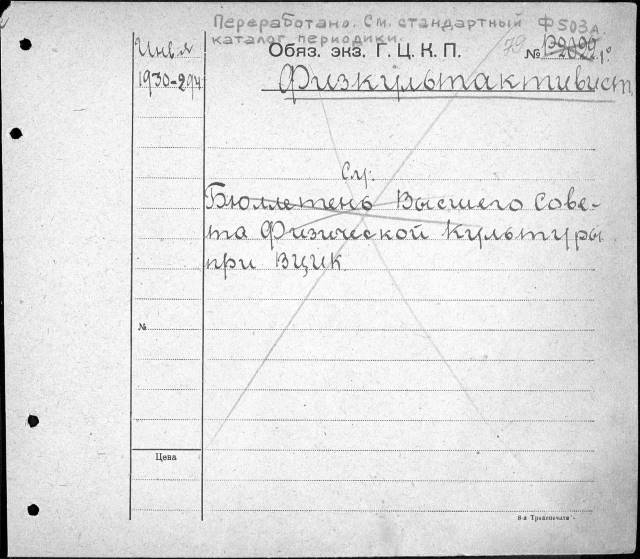 Переработано. См. стандартный
каталог периодики.
Ф503а
Инвл
1930-294
Обяз. экз. Г. Ц. К. П.
79
№
1°
Физкультактивист,
См:
Бюллетень Высшего Сове-
та Физической Культуры
при ВЦИК.
№
Цена